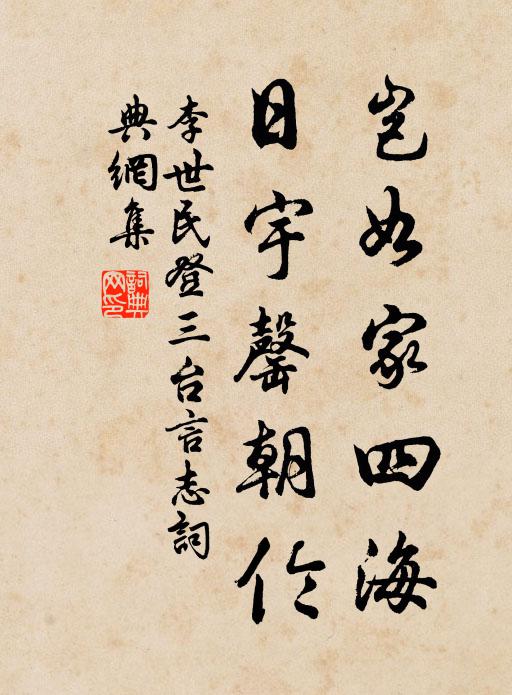 豈如家四海
日宇罄朝倫
李世民登三台言志詞
典網集
詞典
网印